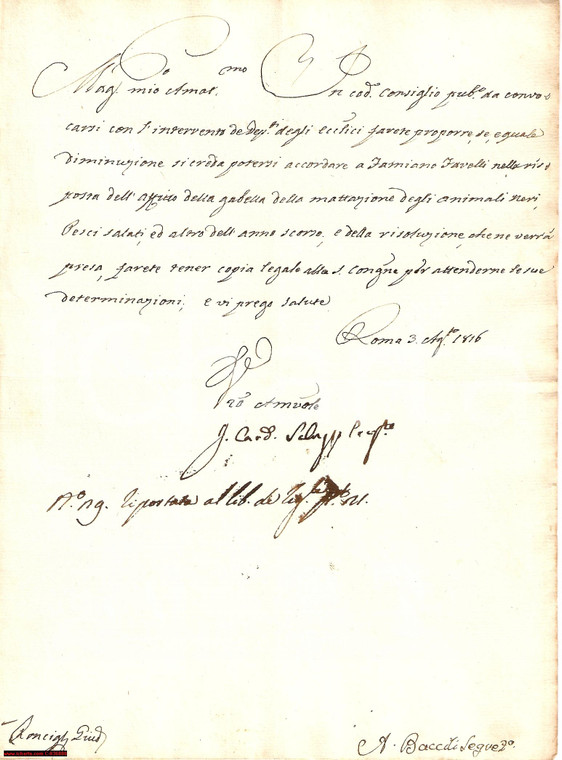 Mag.co mio Amat.mo In cod.o Consiglio pub.o da convo=
carsi con l'intervento de Dep.ti degli Eccl.ici farete proporre, se, e quale
diminuzione si creda potersi accordare a Damiano Tavelli nella ris=
posta dell'affitto della gabella della mattazione degli animali neri,
Pesci salati, ed altro dell'anno scorso, e della risoluzione, che ne verrà
presa, farete tener copia legale alla S. Cong.ne per attenderne le sue
determinazioni, e vi prego salute.
Roma 3. Ag.to 1816
V.ro Amvole
J. Card.
N.o 19. riportata al lib. de
Roncigl.
A. Bacc.li Segret.o